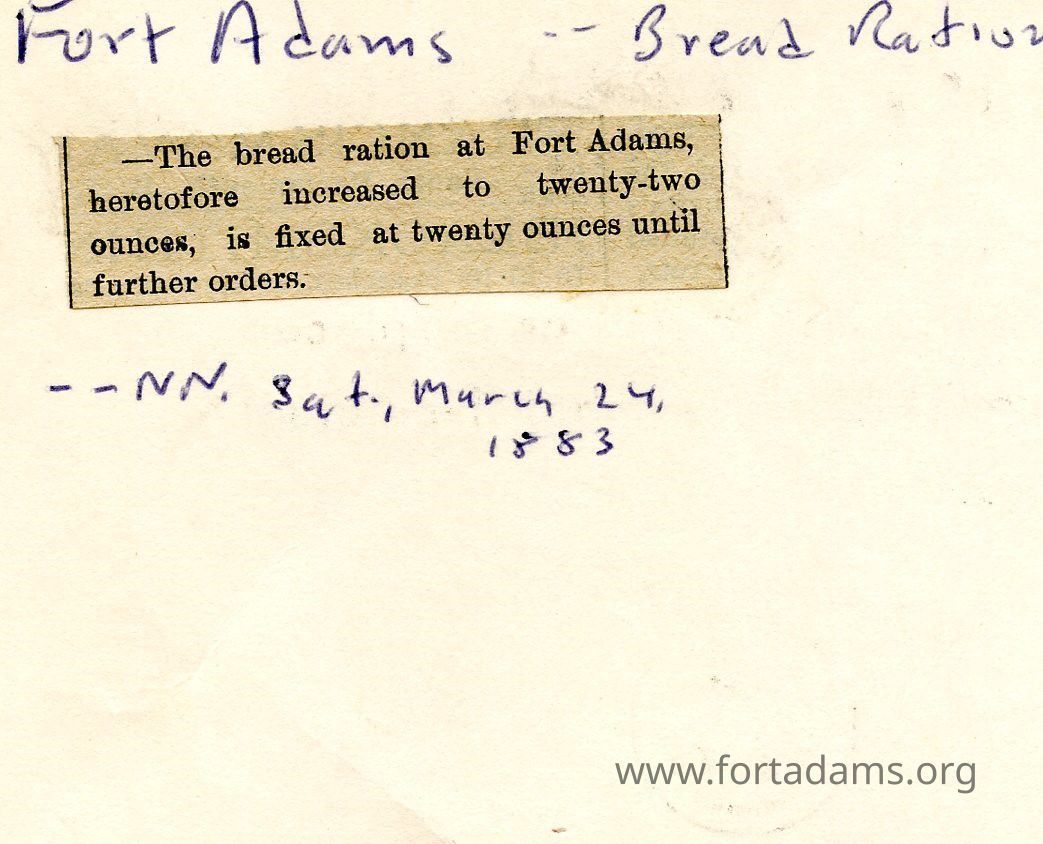 Fort Adams -- Bread Ration
—The bread ration at Fort Adams,
heretofore increased to twenty-two
ounces, is fixed at twenty ounces until
further orders.
--NN. Sat., March 24,
1883
www.fortadams.org